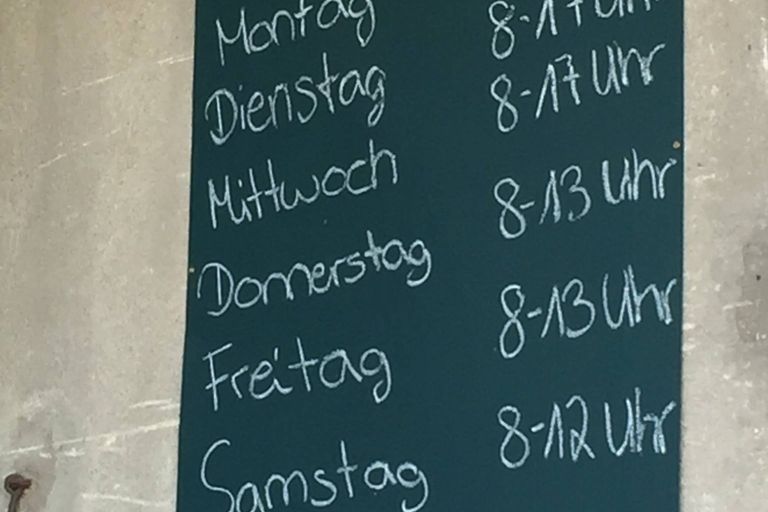 Montag 8-17 Uhr
Dienstag 8-17 Uhr
Mittwoch 8-13 Uhr
Donnerstag 8-13 Uhr
Freitag 8-12 Uhr
Samstag